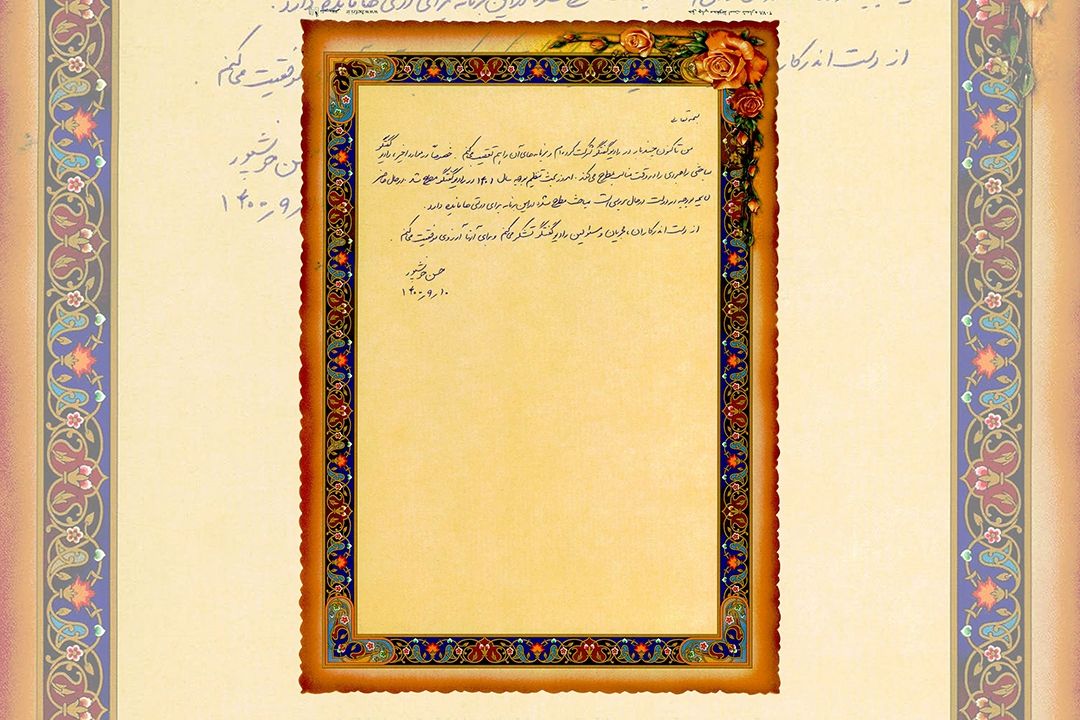 بسمه تعالی
من تا کنون چند بار در رادیو گفتگو شرکت کرده‌ام و برنامه‌های آن را هم تعقیب می‌کنم. خصوصاً در موارد اخیر، رادیو گفتگو
مباحثی راهبردی را در وقت مناسب مطرح می‌کند. امروز بحث تنظیم بودجه سال ۱۴۰۱ در رادیو گفتگو مطرح شد. در حال حاضر
لایحه بودجه در دولت در حال بررسی است. مباحث مطرح شده در این برنامه برای دولتی‌ها فایده دارد.
از دست اندرکاران، مجریان و مسئولین رادیو گفتگو تشکر می‌کنم و برای آنها آرزوی موفقیت می‌کنم.
حسن خوشپور
۱۴۰۰٫۹٫۱۰